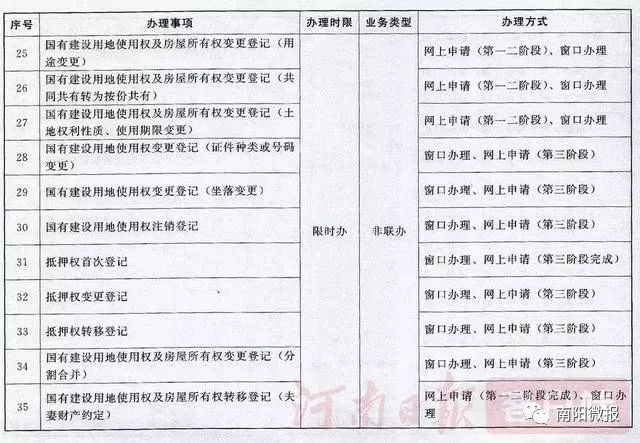 序号 办理事项 办理时限 业务类型 办理方式
25 国有建设用地使用权及房屋所有权变更登记（用
途变更） 网上申请（第一二阶段）、窗口办理
26 国有建设用地使用权及房屋所有权变更登记（共
同共有转为按份共有） 网上申请（第一二阶段）、窗口办理
27 国有建设用地使用权及房屋所有权变更登记（土
地权利性质、使用期限变更） 网上申请（第一二阶段）、窗口办理
28 国有建设用地使用权变更登记（证件种类或号码
变更） 窗口办理、网上申请（第三阶段）
29 国有建设用地使用权变更登记（坐落变更） 窗口办理、网上申请（第三阶段）
30 国有建设用地使用权注销登记 限时办 非联办 窗口办理、网上申请（第三阶段）
31 抵押权首次登记 窗口办理、网上申请（第三阶段完成）
32 抵押权变更登记 窗口办理、网上申请（第三阶段）
33 抵押权转移登记 窗口办理、网上申请（第三阶段）
34 国有建设用地使用权及房屋所有权变更登记（分
割合并） 窗口办理、网上申请（第三阶段）
35 国有建设用地使用权及房屋所有权转移登记（夫
妻财产约定） 网上申请（第一二阶段完成）、窗口办
理
河南日报
南阳微报